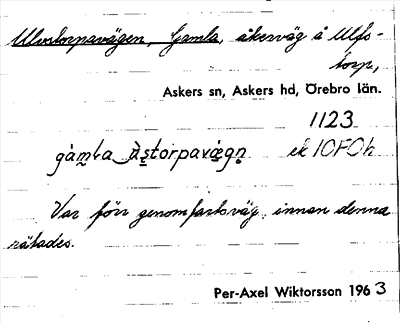 Ulvstorpavägen, Gamla, åkerväg å Ulfs-
torp,
Askers sn, Askers hd, Örebro län.
1123
gamla Ustorpavägn ek 10F0h
Var förr genomfartsväg innan denna
rätades.
Per-Axel Wiktorsson 1963